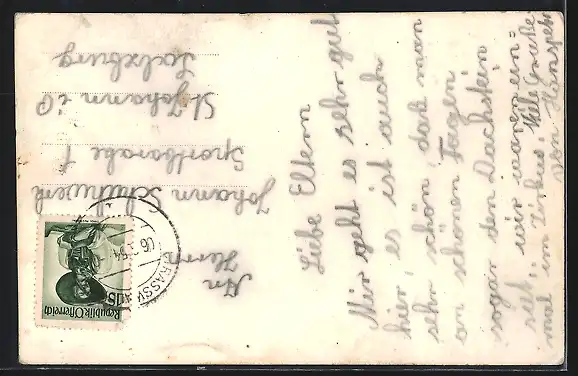 Liebe Eltern
Mir geht es sehr gut
hier, es ist auch
sehr schön, daß man
an schönen Tagen
sogar den Dachstein
sieht, wir waren ein=
mal im Zirkus. Viele Grüße
von Hanspeter
An
Herrn
Johann Schuhwerk
Sportbarake 1
St. Johann i. P.
Salzburg
Republik Österreich